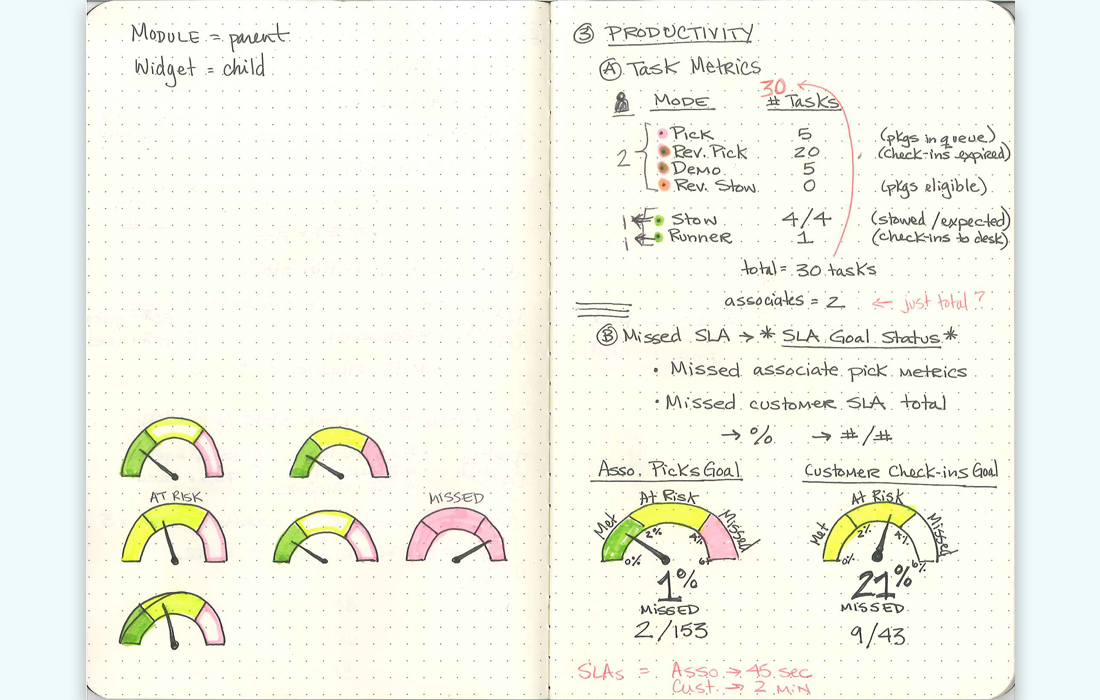 Module = parent
Widget = child
AT RISK
MISSED
③ PRODUCTIVITY
Ⓐ Task Metrics
30
Mode # Tasks
2
Pick 5 (pkgs in queue)
Rev. Pick 20 (check-ins expired)
Demo 5
Rev. Stow 0 (pkgs eligible)
1 ← Stow 4/4 (stowed/expected)
1 ← Runner 1 (check-ins to desk)
total = 30 tasks
associates = 2 ← just total?
Ⓑ Missed SLA → * SLA Goal Status *
• Missed associate pick metrics
• Missed customer SLA total
→ % → #/#
Asso. Picks Goal
Met At Risk Missed
0% 2% 4% 6%
1%
MISSED
2/153
Customer Check-ins Goal
Met At Risk Missed
0% 2% 4% 6%
21%
MISSED
9/43
SLAs = Asso. → 45 sec
Cust. → 2 min